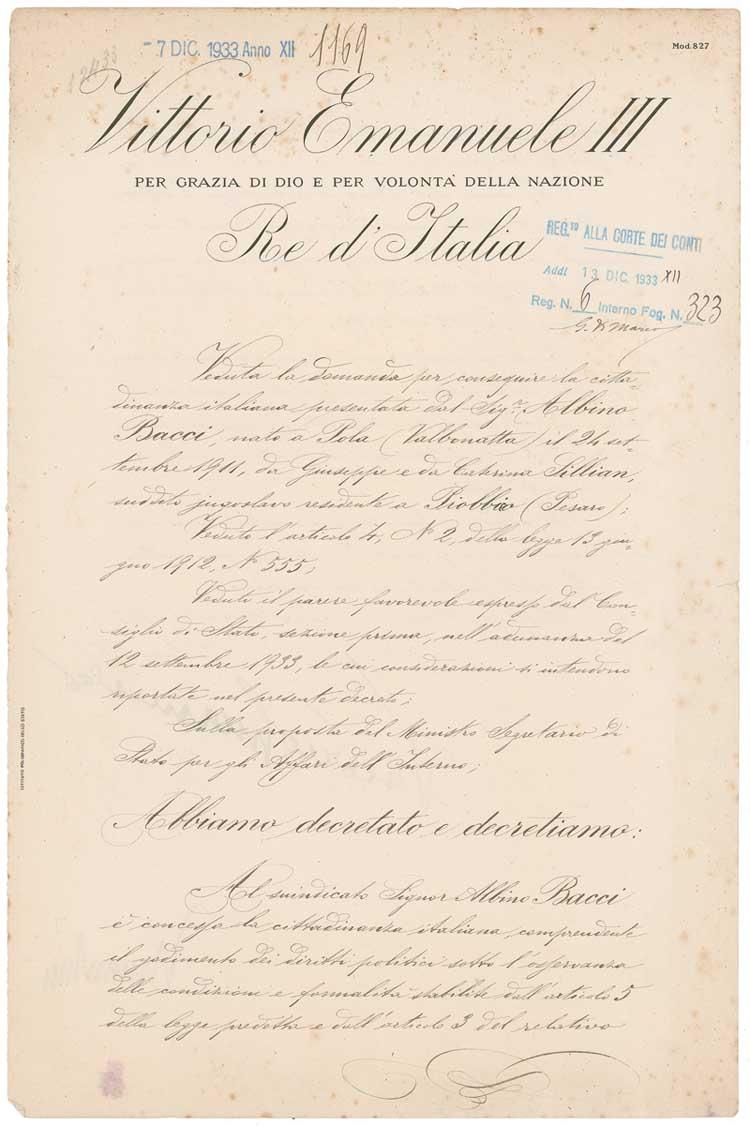 - 7 DIC. 1933 Anno XII 1169
Mod. 827
Vittorio Emanuele III
PER GRAZIA DI DIO E PER VOLONTÀ DELLA NAZIONE
Re d'Italia
REG.TO ALLA CORTE DEI CONTI
Addì 13 DIC. 1933 XII
Reg. N. 6 Interno Fog. N. 323
Veduta la domanda per conseguire la citta-
dinanza italiana presentata dal Sig.r Albino
Bacci, nato a Pola (Valbonatta) il 24 set-
tembre 1911, da Giuseppe e da Catrina Sillian,
suddito jugoslavo residente a Piobbico (Pesaro);
Veduto l'articolo 4, N 2, della legge 13 giu-
gno 1912, N 555;
Veduto il parere favorevole espresso dal Con-
siglio di Stato, sezione prima, nell'adunanza del
12 settembre 1933, le cui considerazioni si intendono
riportate nel presente decreto;
Sulla proposta del Ministro Segretario di
Stato per gli Affari dell'Interno;
Abbiamo decretato e decretiamo:
Al suindicato Signor Albino Bacci
è concessa la cittadinanza italiana, comprendente
il godimento dei diritti politici sotto l'osservanza
delle condizioni e formalità stabilite dall'articolo 5
della legge predetta e dall'articolo 3 del relativo
ISTITUTO POLIGRAFICO DELLO STATO